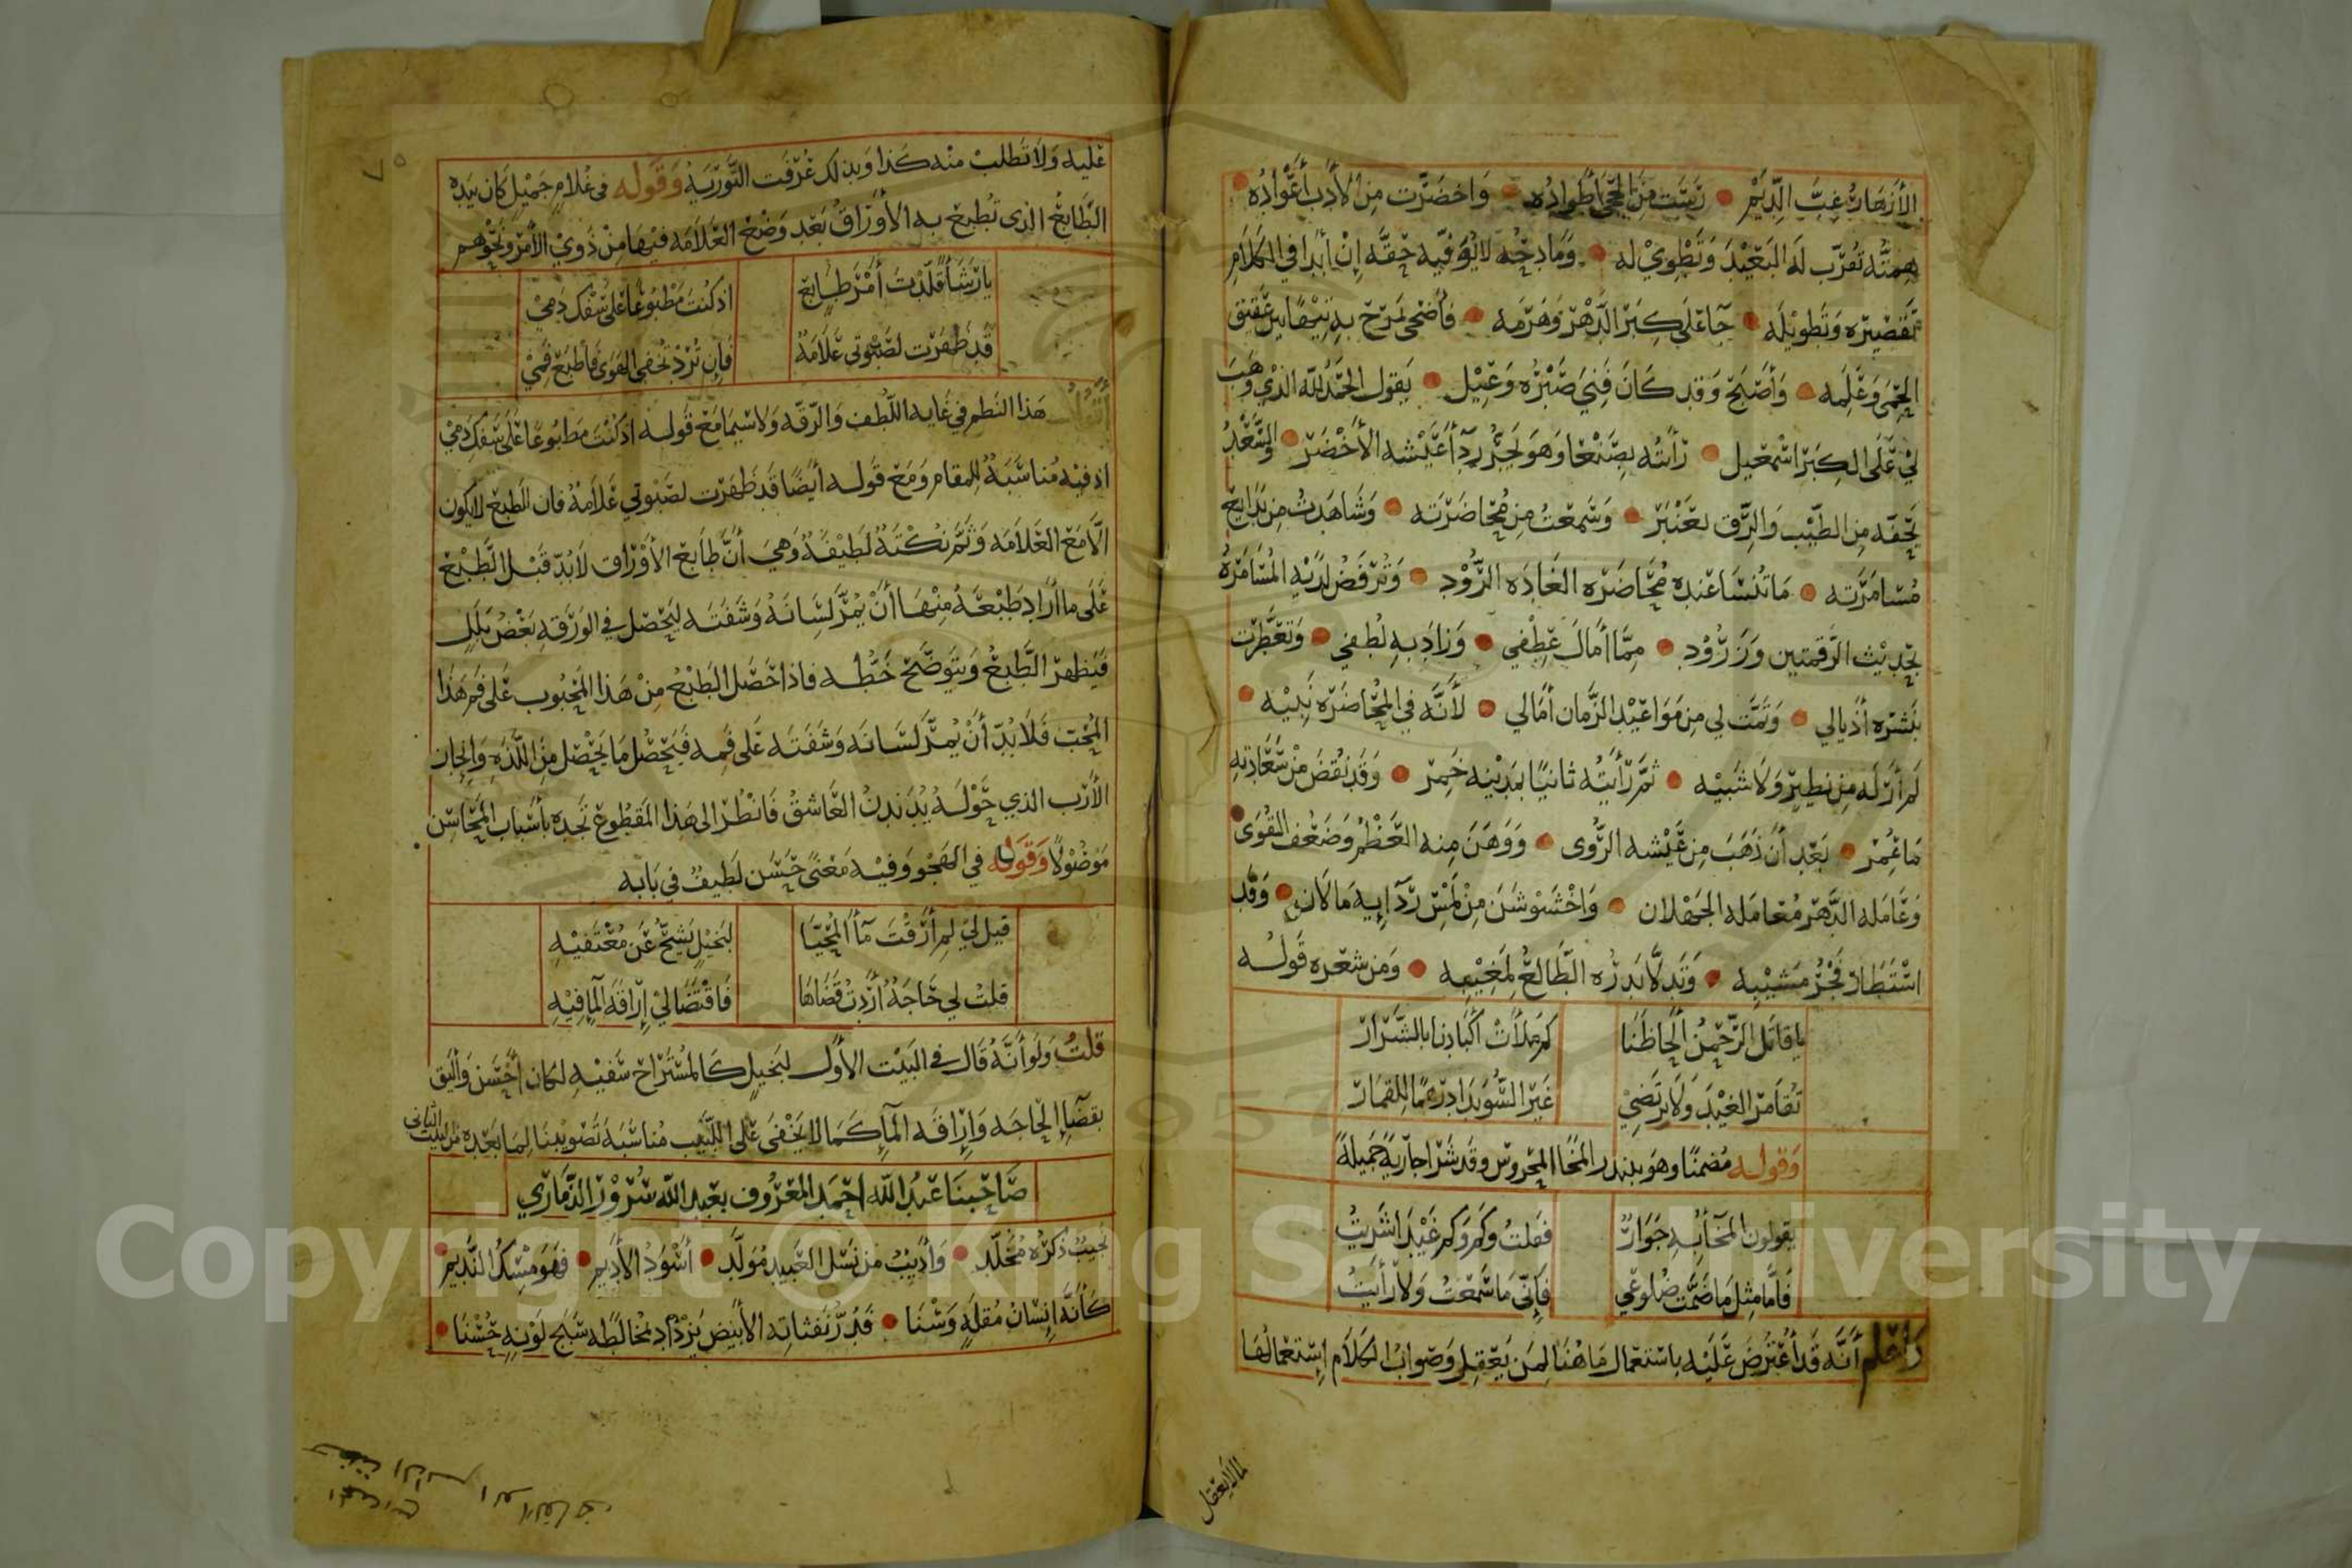 الأزهار غبّ الديم • رست من الحجى أطواده • واخضرّت من الأدب أعواده
همته تقرّب له البعيد وتطوي له • ومادحه لا يوفيه حقه إن أبدا في الكلام
تقصيره وتطويله • جا على كبر الدهر وهرمه • فأضحى يمرح به تيها بين عقيق
الحمى وعلمه • وأصبح وقد كان فني صبره وعيل • يقول الحمد لله الذي وهب
لي على الكبر اسمعيل • رأيته بصنعا وهو يجرّ ردآ عيشه الأخضر • والسعد
يحفه من الطيب والرق بعنبر • وسمعت من محاضرته • وشاهدت من بدايع
مسامرته • ما تنسا عنده محاضرة الغادة الرود • وترفض لديه المسامرة
بحديث الرقمتين وزرود • مما أمال عطفي • وزاد به لطفي • وتعطرت
بنشره أذيالي • وتمت لي من مواعيد الزمان أمالي • لأنه في المحاضرة نبيه •
لم أر له من نظير ولا شبيه • ثم رأيته ثانيا بمدينة خمر • وقد نقض من سعادته
ما عمر • بعد أن ذهب من عيشه الروى • ووهن منه العظم وضعف القوى •
وعامله الدهر معاملة الجهلان • واخشوشن من لمس ردآ إيه ما لان • وقد
استطار فجر مشيبه • وتدلا بدره الطالع لمغيبه • ومن شعره قوله
يا قاتل الرحمن ألحاظنا كم ملأت أكبادنا بالشرار
تقامر الغيد ولا يرتضي غير السويدا درهما للقمار
وقوله مضمنا وهو ببندر المخا المحروس وقد شرا جارية جميلة
يقولون المخا به جوار فقلت وكم وكم غيدا شريت
فأما مثل ما ضمت ضلوعي فإني ما سمعت ولا رأيت
واعلم أنه قد أعترض عليه باستعمال ما هنا لمن يعقل وصواب الكلام إستعمالها
لما لا يعقل
٧٥
عليه ولا تطلب منه كذا وبذلك عرفت التورية وقوله في غلام جميل كان بيده
الطابع الذي تطبع به الأوراق بعد وضع العلامة فيها من ذوي الأمر ونحوهم
يا رشأ قلدت أمر طابع اذ كنت مطبوعا على سفك دمي
قد ظهرت لصبوتي علامة فإن ترد تخفي الهوى فاطبع فمي
هذا النظم في غاية اللطف والرقة ولا سيما مع قوله اذ كنت مطبوعا على سفك دمي
اذ فيه مناسبة للمقام ومع قوله أيضا قد ظهرت لصبوتي علامة فان الطبع لا يكون
الا مع العلامة وثم نكتة لطيفة وهي أن طابع الأوراق لا بد قبل الطبع
على ما أراد طبعه منها أن يمر لسانه وشفته ليحصل في الورقة بعض بلل
فيظهر الطبع ويتوضح خطه فاذا حصل الطبع من هذا المحبوب على فم هذا
المحب فلا بد أن يمر لسانه وشفته على فمه فيحصل ما يحصل من اللذة وإيجاز
الأرب الذي حوله يدندن العاشق فانظر الى هذا المقطوع تجده بأسباب المحاسن
موصولا وقوله في الهجو وفيه معنى حسن لطيف في بابه
قيل لي لم أرقت مآ المحيا لبخيل يشح عن معتفيه
قلت لي حاجة أردت قضاها فاقتضا لي إراقة المآ فيه
قلت ولو أنه قال في البيت الأول لبخيل كالمستراح سفيه لكان أحسن وأليق
بقضا الحاجة وإراقة المآ كما لا يخفى على اللبيب مناسبة تصويبنا لما بعده من البيت الثاني
صاحبنا عبد الله احمد المعروف بعبد الله سرور الذماري
نجيب ذكره مخلد • وأديب من نسل العبيد مولد • أسود الأديم • فهو مسك النديم •
كأنه إنسان مقلة وسنا • قد رنفثاته الأبيض يزداد مخالطه سبج لونه حسنا •